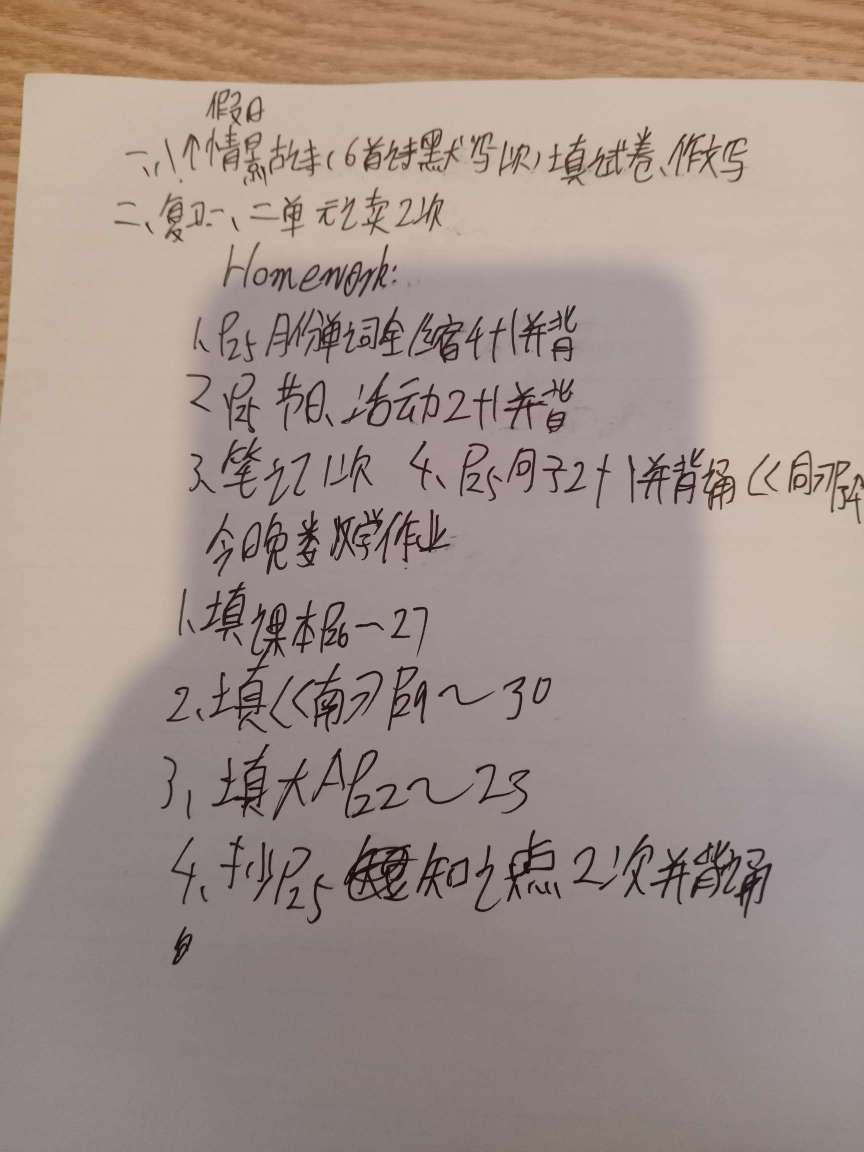 假日
一、八个情景故事(6首诗默写1次)填试卷、作文写
二、复习一、二单元读2次
Homework:
1、P25月份单词全/缩4+1并背
2 P25 节日、活动2+1并背
3、笔记1次 4、P25句子2+1并背诵《同》P34
今日晚娄数学作业
1、填课本P26~27
2、填《南》P29~30
3、填大A P22~23
4、抄P25 知识点2次并背诵